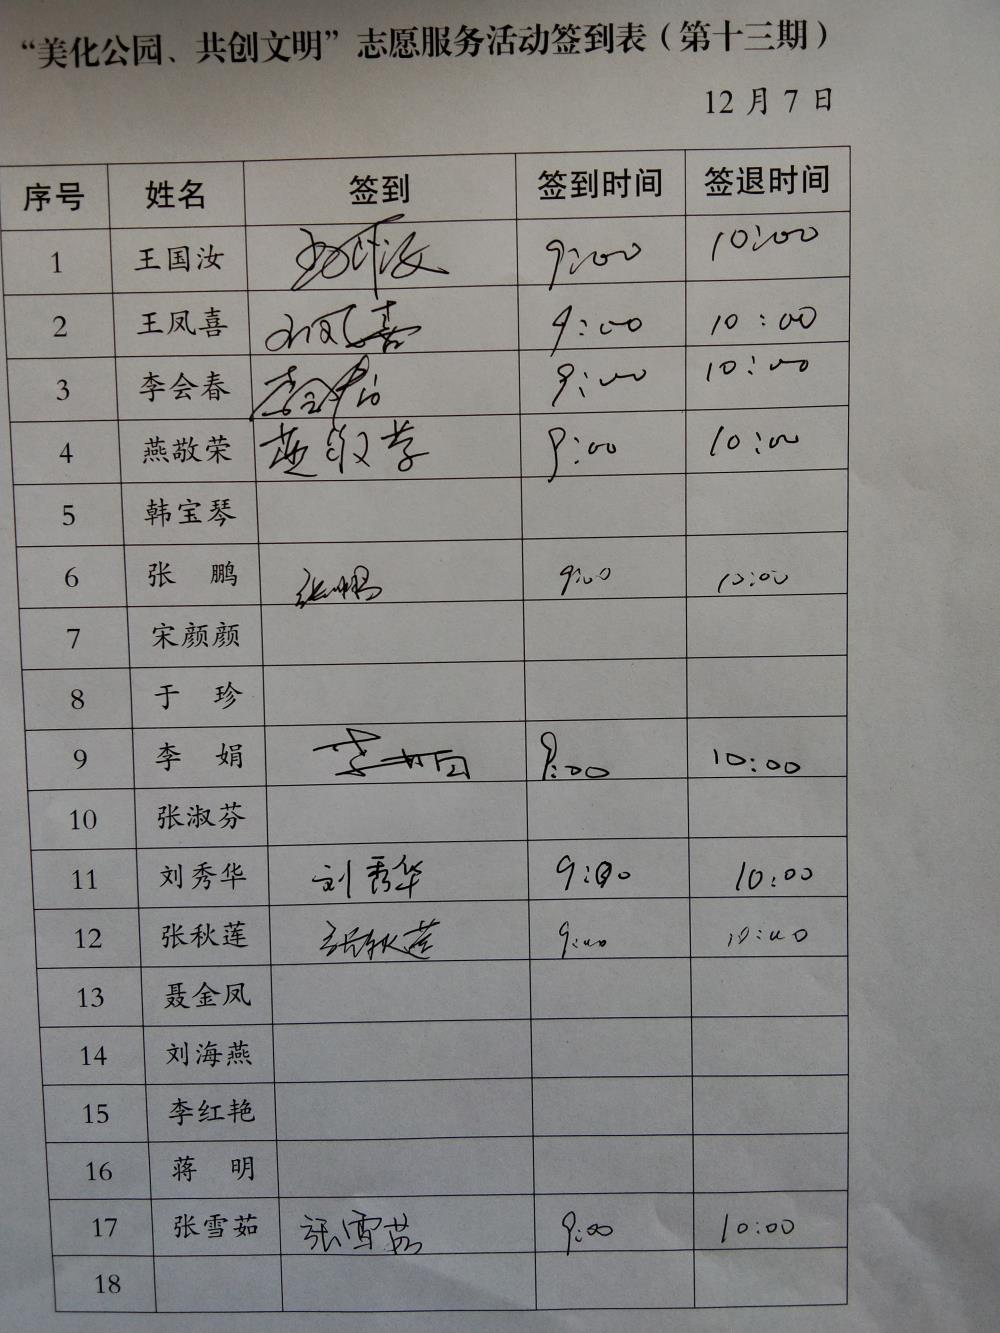 “美化公园、共创文明”志愿服务活动签到表（第十三期）
12 月 7 日
序号 姓名 签到 签到时间 签退时间
1 王国汝 王国汝 9:00 10:00
2 王凤喜 王凤喜 9:00 10:00
3 李会春 李会春 9:00 10:00
4 燕敬荣 燕敬荣 9:00 10:00
5 韩宝琴
6 张 鹏 张鹏 9:00 10:00
7 宋颜颜
8 于 珍
9 李 娟 李娟 9:00 10:00
10 张淑芬
11 刘秀华 刘秀华 9:00 10:00
12 张秋莲 张秋莲 9:00 10:00
13 聂金凤
14 刘海燕
15 李红艳
16 蒋 明
17 张雪茹 张雪茹 9:00 10:00
18